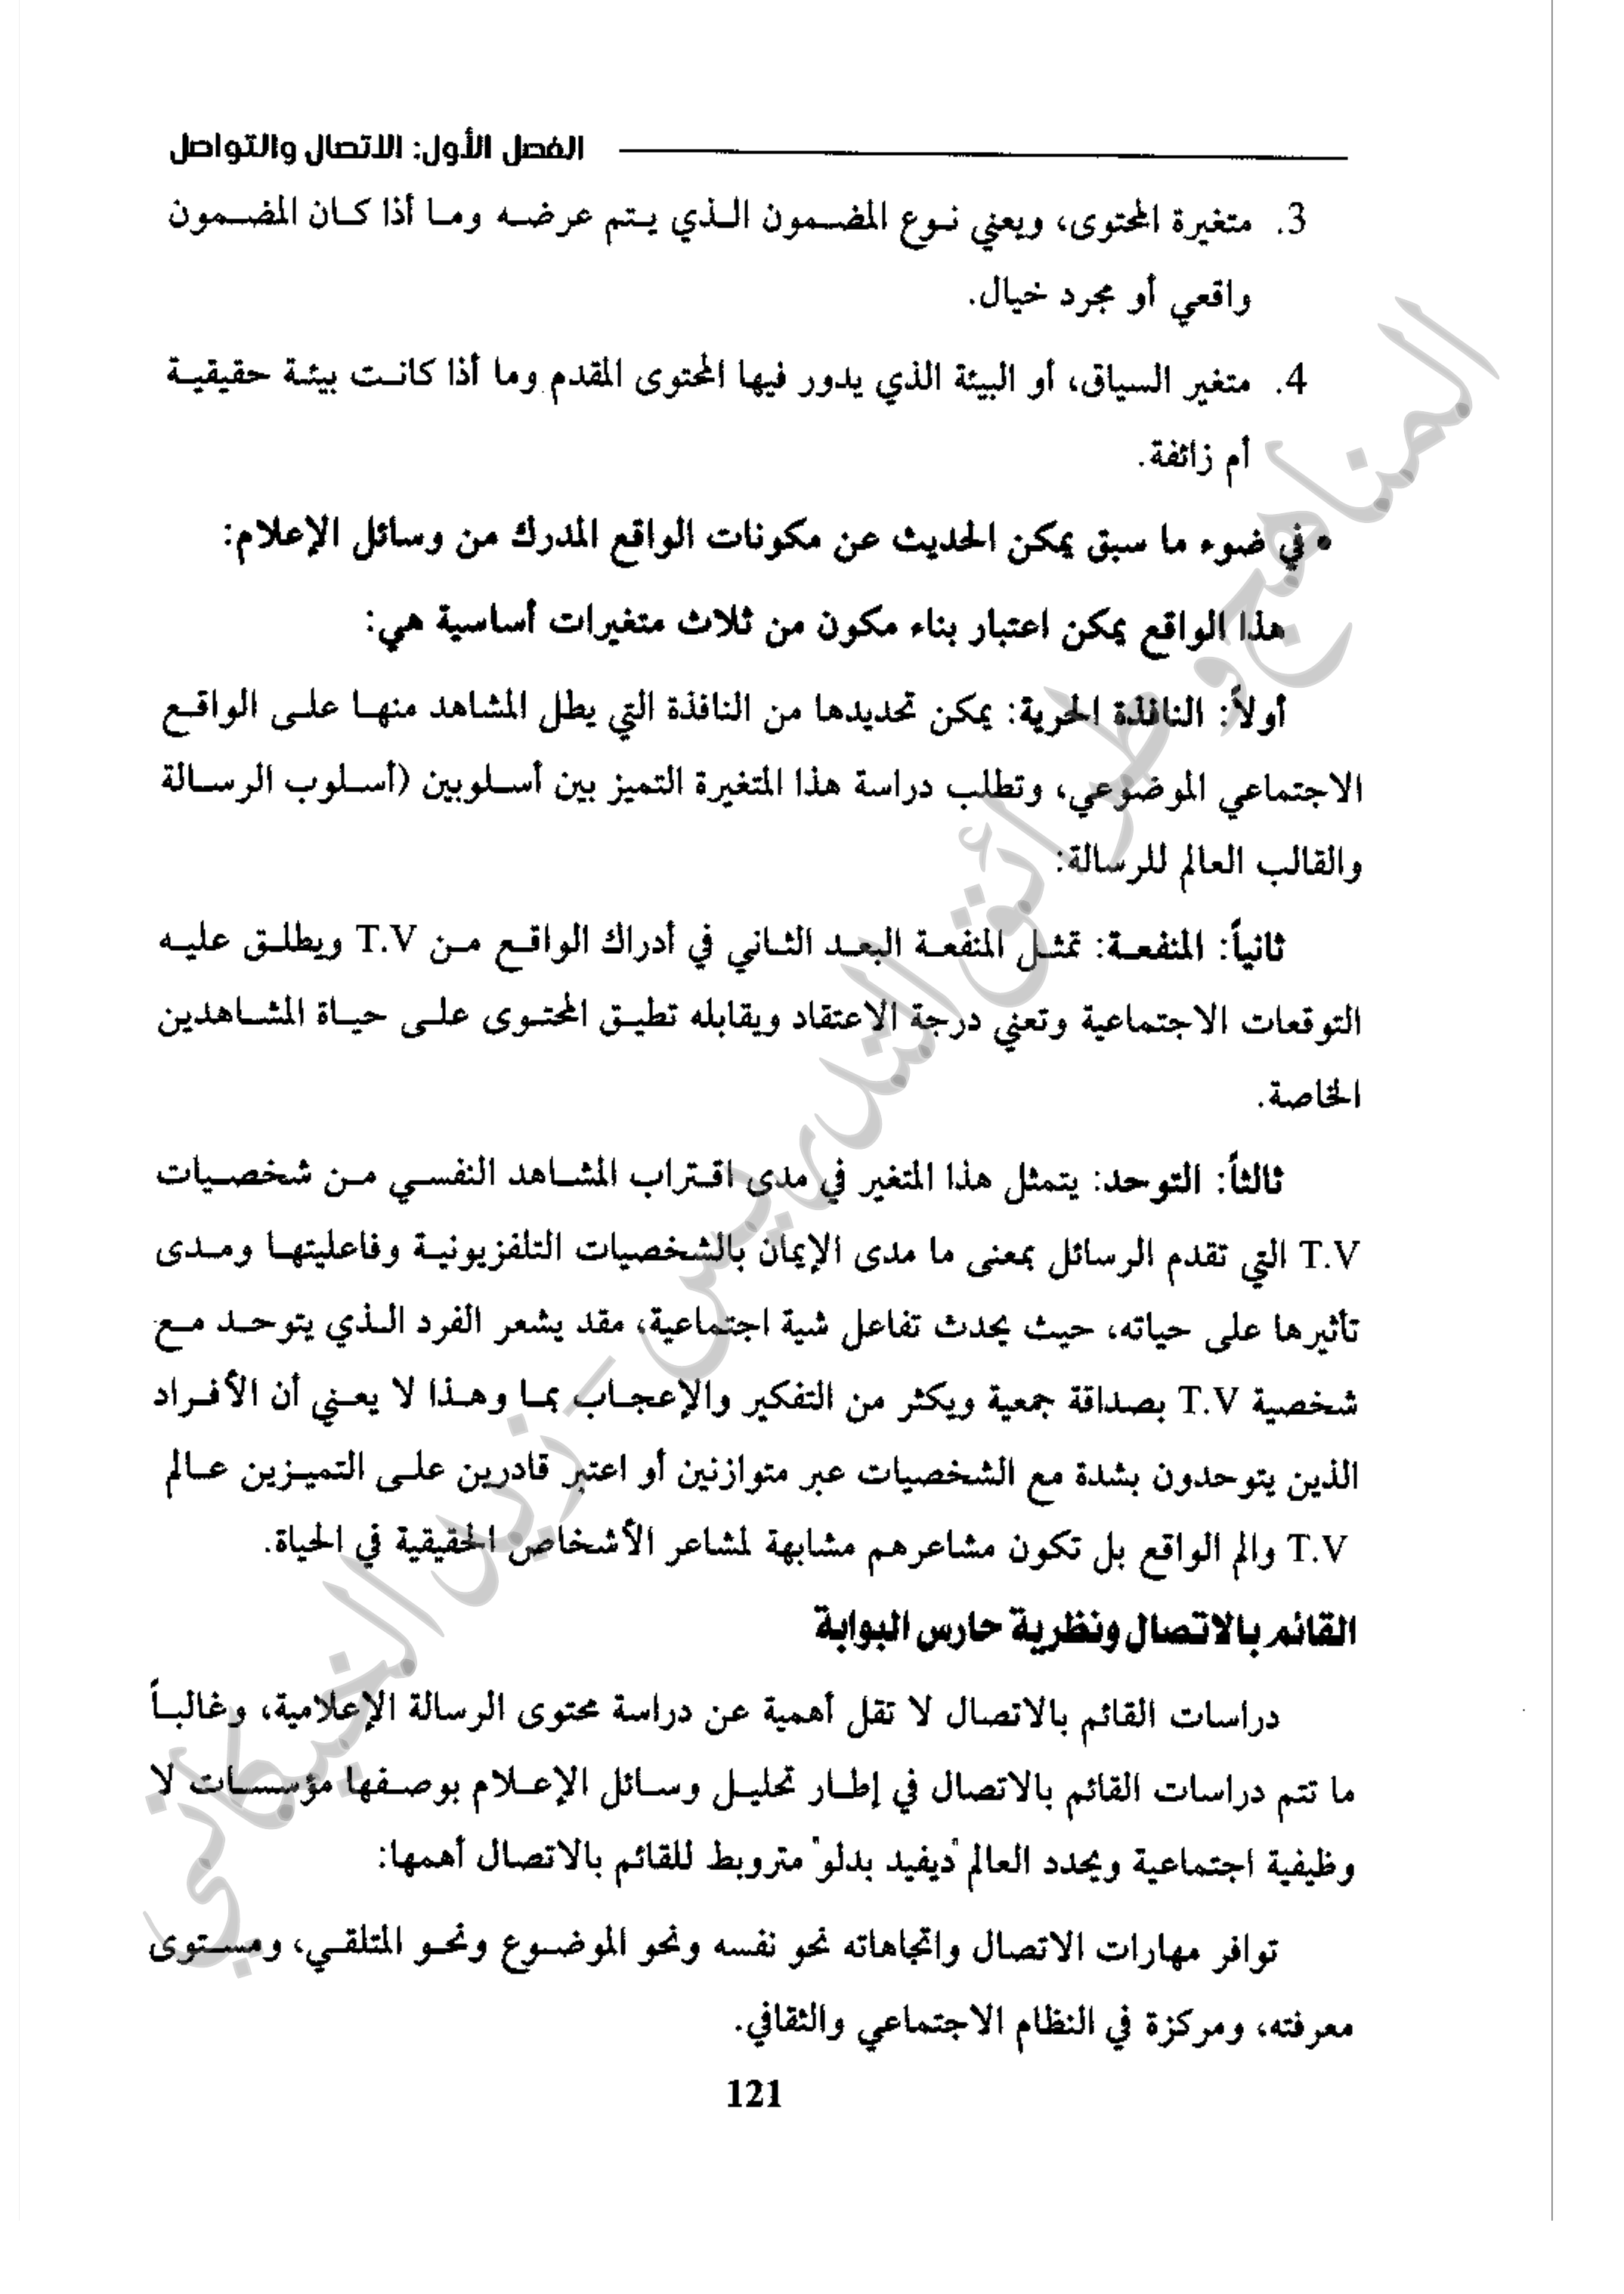 الفصل الأول: الاتصال والتواصل
3. متغيرة المحتوى، ويعني نوع المضمون الذي يتم عرضه وما أذا كان المضمون
واقعي أو مجرد خيال.
4. متغير السياق، أو البيئة الذي يدور فيها المحتوى المقدم وما أذا كانت بيئة حقيقية
أم زائفة.
• في ضوء ما سبق يمكن الحديث عن مكونات الواقع المدرك من وسائل الإعلام:
هذا الواقع يمكن اعتبار بناء مكون من ثلاث متغيرات أساسية هي:
أولاً: النافذة الحرية: يمكن تحديدها من النافذة التي يطل المشاهد منها على الواقع
الاجتماعي الموضوعي، وتطلب دراسة هذا المتغيرة التميز بين أسلوبين (أسلوب الرسالة
والقالب العالم للرسالة:
ثانياً: المنفعة: تمثل المنفعة البعد الثاني في أدراك الواقع من T.V ويطلق عليه
التوقعات الاجتماعية وتعني درجة الاعتقاد ويقابله تطيق المحتوى على حياة المشاهدين
الخاصة.
ثالثاً: التوحد: يتمثل هذا المتغير في مدى اقتراب المشاهد النفسي من شخصيات
T.V التي تقدم الرسائل بمعنى ما مدى الإيمان بالشخصيات التلفزيونية وفاعليتها ومدى
تأثيرها على حياته، حيث يحدث تفاعل شية اجتماعية، مقد يشعر الفرد الذي يتوحد مع
شخصية T.V بصداقة جمعية ويكثر من التفكير والإعجاب بما وهذا لا يعني أن الأفراد
الذين يتوحدون بشدة مع الشخصيات عبر متوازنين أو اعتبر قادرين على التميزين عالم
T.V والم الواقع بل تكون مشاعرهم مشابهة لمشاعر الأشخاص الحقيقية في الحياة.
القائم بالاتصال ونظرية حارس البوابة
دراسات القائم بالاتصال لا تقل أهمية عن دراسة محتوى الرسالة الإعلامية، وغالباً
ما تتم دراسات القائم بالاتصال في إطار تحليل وسائل الإعلام بوصفها مؤسسات لا
وظيفية اجتماعية ويحدد العالم "ديفيد بدلو" متروبط للقائم بالاتصال أهمها:
توافر مهارات الاتصال واتجاهاته نحو نفسه ونحو الموضوع ونحو المتلقي، ومستوى
معرفته، ومركزة في النظام الاجتماعي والثقافي.
121
المناهج وطرائق التدريس - زيد الخيكاني